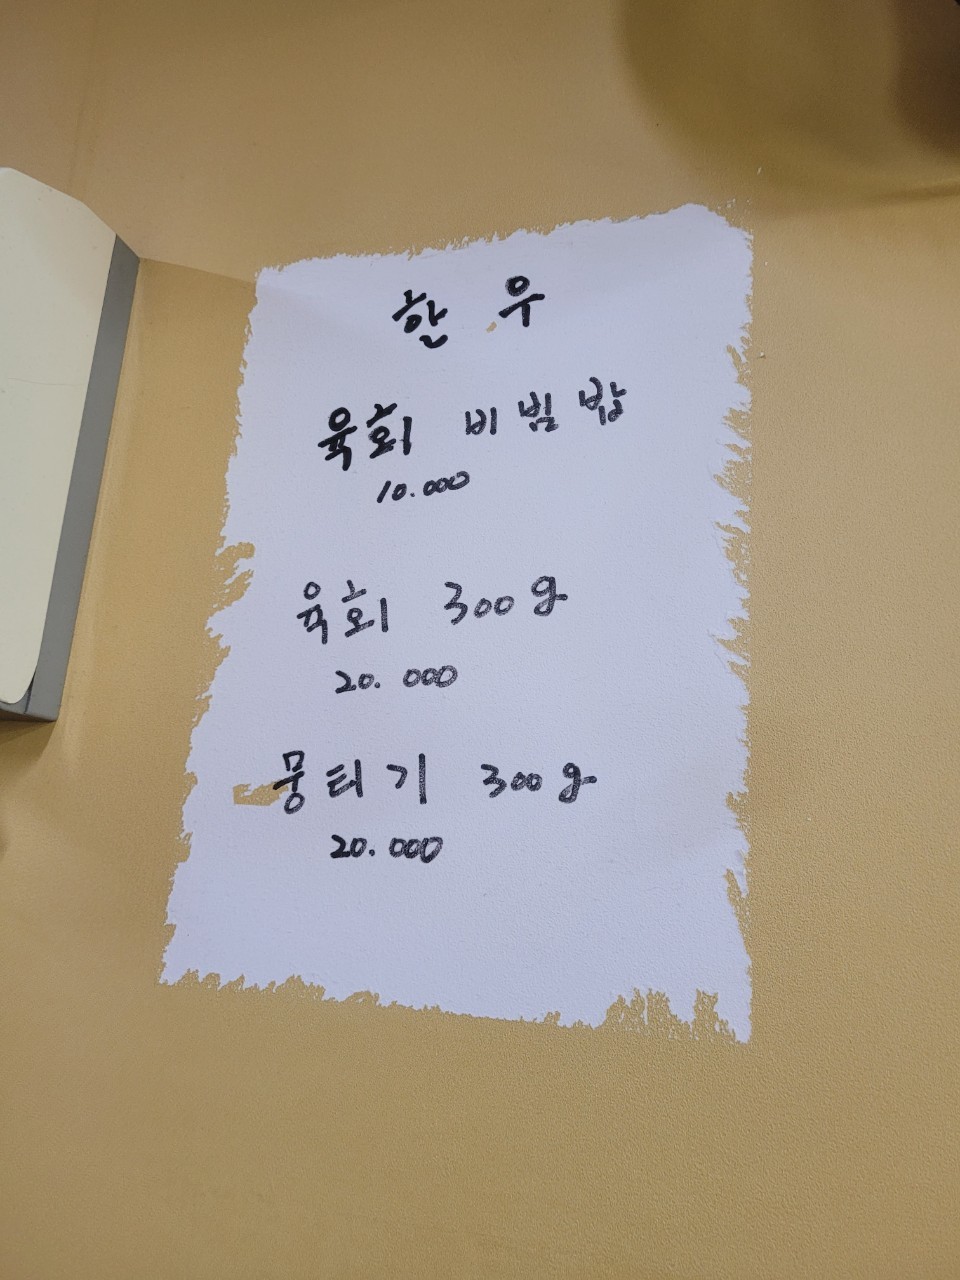 한 우
육회 비빔밥
10.000
육회 300g
20. 000
뭉티기 300g
20.000